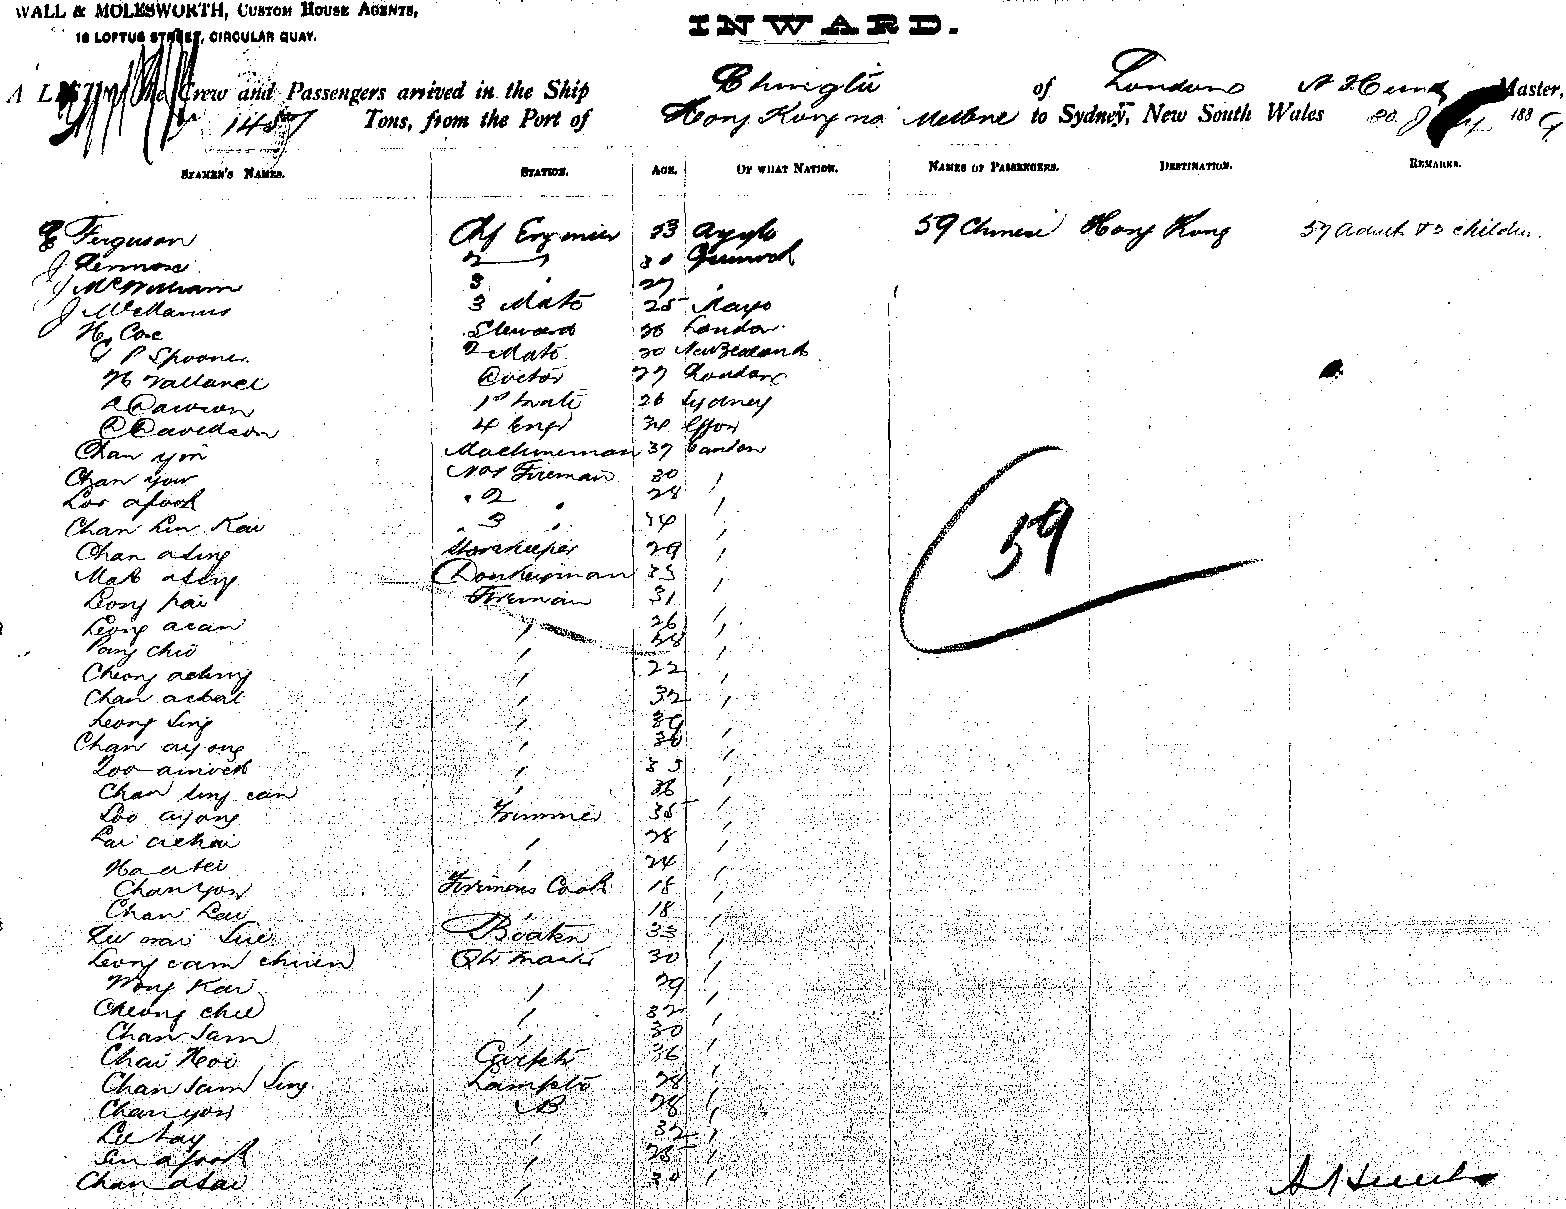 WALL & MOLESWORTH, CUSTOM HOUSE AGENTS,
18 LOFTUS STREET, CIRCULAR QUAY.
INWARD.
A LIST of the Crew and Passengers arrived in the Ship Chingtu of London Master,
1457 Tons, from the Port of Hong Kong via Melbne to Sydney, New South Wales 1889
SEAMEN'S NAMES. STATION. AGE. OF WHAT NATION. NAMES OF PASSENGERS. DESTINATION. REMARKS.
Ferguson Chf Engineer 33 Argyle 59 Chinese Hong Kong 57 adults & 2 children
J Lennox 2 " 30 Greenock
J McWilliam 3 " 27 "
J McManus 3 Mate 25 Mayo
Hy Coe Steward 26 London
G P Spooner 2 Mate 30 New Zealand
H Vallance Doctor 27 London
A Dawson 1st mate 26 Sydney
D Davidson 4 Engr
Chan yin Machineman 37 Canton
Chan yow No 1 Fireman 30 "
Loo afook " 2 28 "
Chan Lin Kai " 3 " 34 "
Chan ating Storekeeper 29 "
Mak ating Donkeyman 33 "
Leong kai Fireman 31 "
Leong acan " 26 "
Pang chio " 28 "
Cheong acking " 22 "
Chan achat " 32 "
Leong Sing " 39 "
Chan ayong " 30 "
Loo " 33 "
Chan ling can " 36 "
Loo ayong Trimmer 35 "
Lai achoi " 28 "
Ho atei " 24 "
Chan yow Firemens Cook 18 "
Chan Lai " 18 "
Sue Boatsn 33 "
Leong cam chuen Qtr master 30 "
Wong Kai " 29 "
Cheong chee " 32 "
Chan Sam " 30 "
Chai Hoi Carptr 36 "
Chan Sam Sing Lamptr 28 "
Chan yow AB 28 "
Lee tay " 32 "
afook " 25 "
Chan atai " 30 "
59